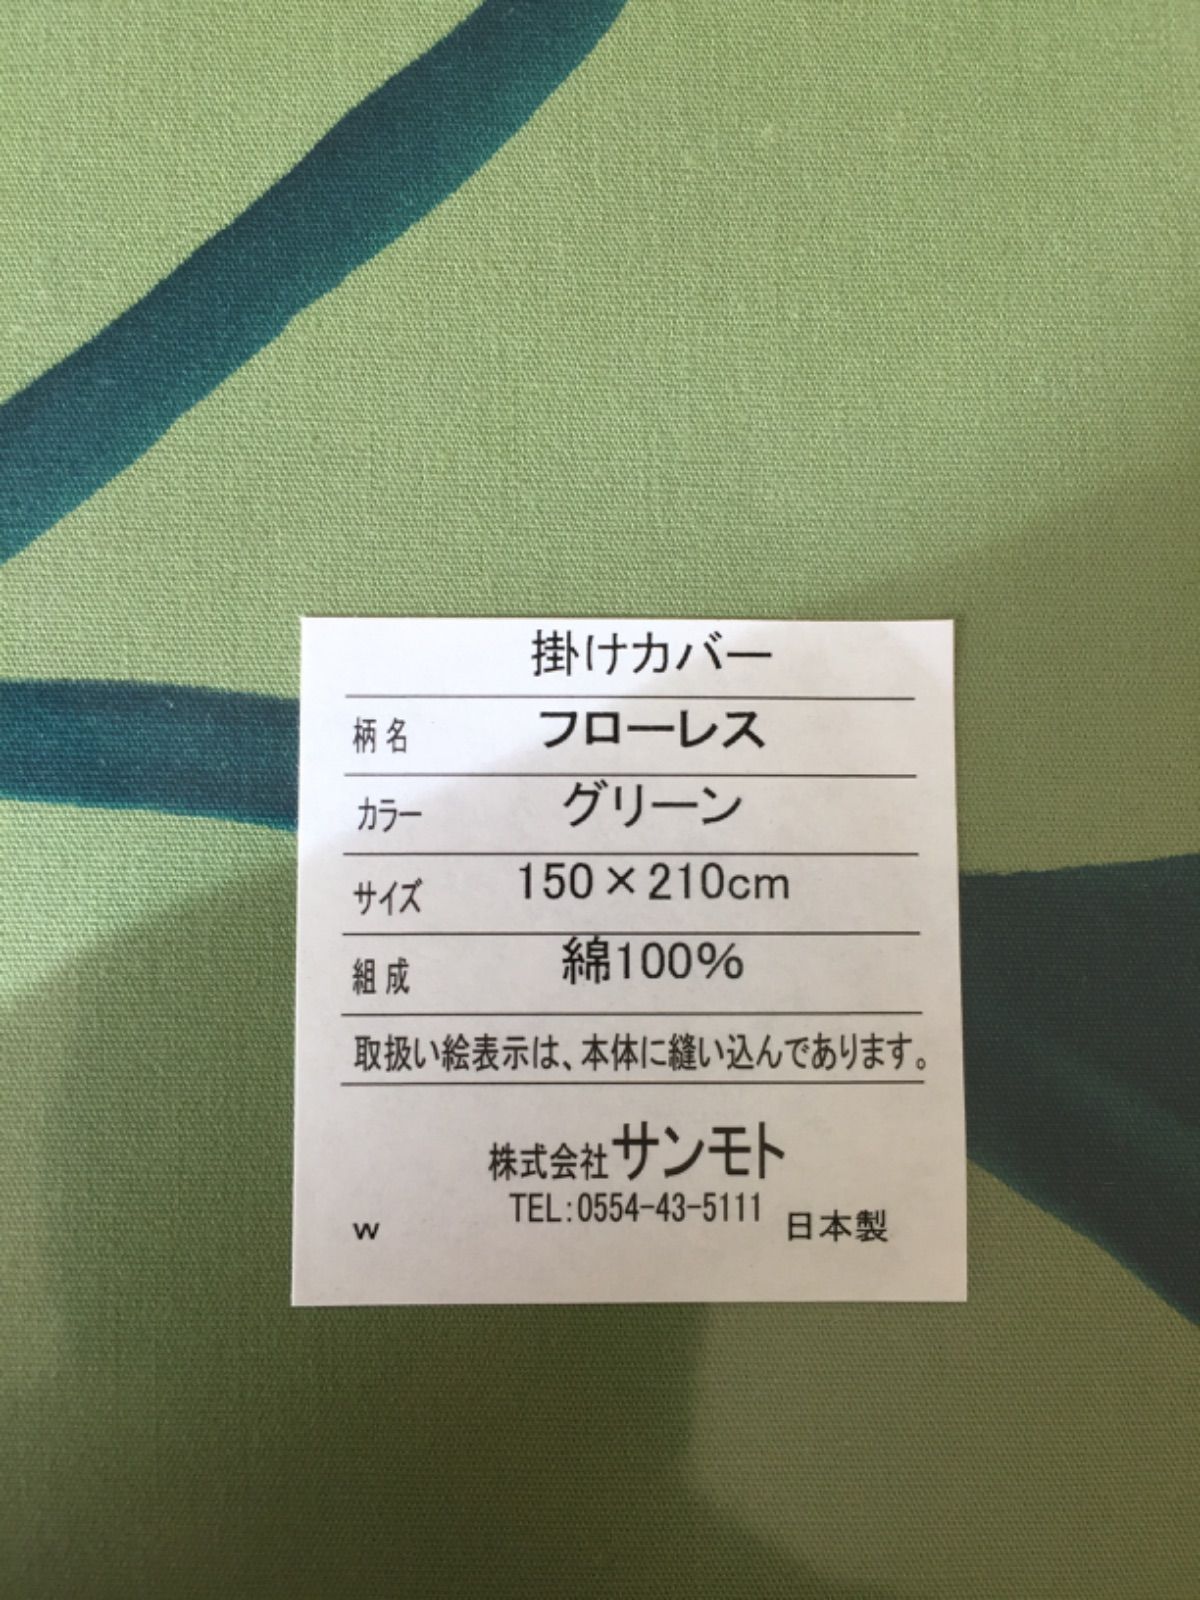 掛けカバー
柄名 フローレス
カラー グリーン
サイズ 150×210cm
組成 綿100%
取扱い絵表示は、本体に縫い込んであります。
株式会社サンモト
TEL:0554-43-5111
w 日本製